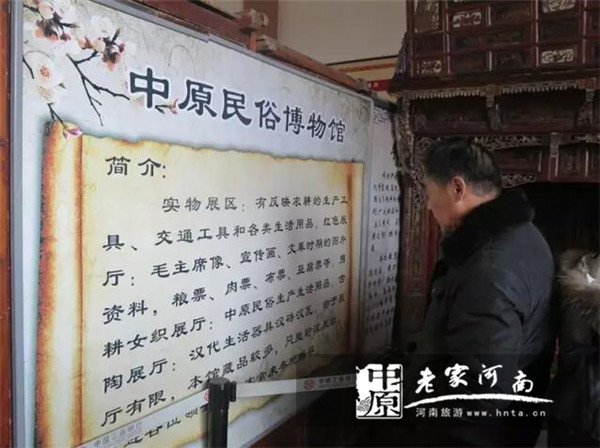 中原民俗博物馆
简介:
实物展区:有反映农耕的生产工
具、交通工具和各类生活用品。红色展
厅:毛主席像、宣传画、文革时期的图片
资料,粮票、肉票、布票、豆腐票等。男
耕女织展厅:中原民俗生产生活用品。古
陶展厅:汉代生活器具汉砖汉瓦。由于展
厅有限,本馆藏品较多,只能轮流展出
中原
老家河南
河南旅游 www.hnta.cn